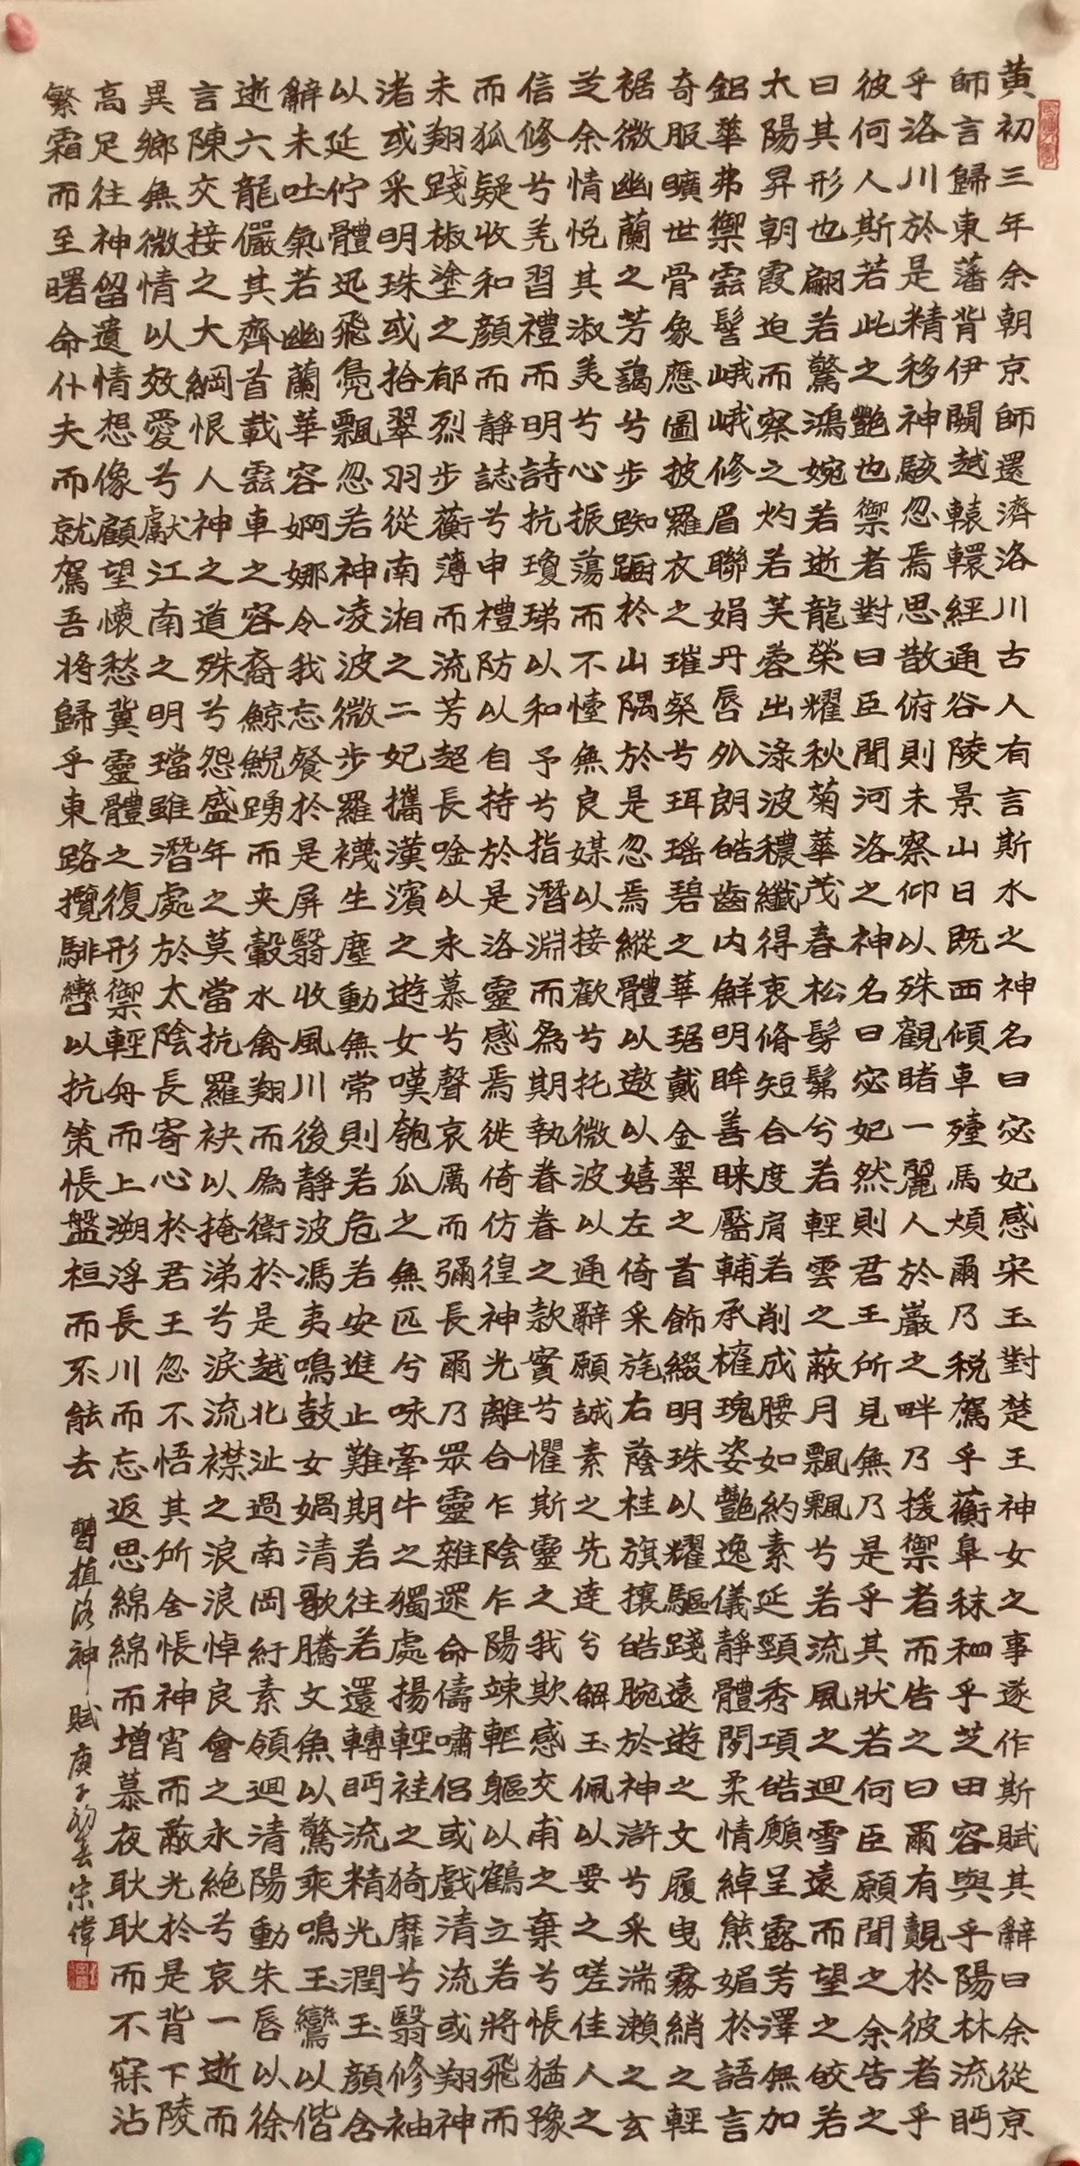 黄初三年余朝京師還濟洛川古人有言斯水之神名曰宓妃感宋玉對楚王神女之事遂作斯賦其辭曰余從京
師言歸東藩背伊闕越轅轘經通谷陵景山日既西傾車殪馬煩爾乃税駕乎蘅皐秣駟乎芝田容與乎陽林流眄
乎洛川於是精移神駭忽焉思散俯則未察仰以殊觀睹一麗人於巖之畔乃援禦者而告之曰爾有覿於彼者乎
彼何人斯若此之艷也禦者對曰臣聞河洛之神名曰宓妃然則君王所見無乃是乎其狀若何臣願聞之余告之
曰其形也翩若驚鴻婉若逝龍榮耀秋菊華茂春松髣髴兮若輕雲之蔽月飄飄兮若流風之迴雪遠而望之皎若
太陽昇朝霞迫而察之灼若芙蓉出淥波穠纖得衷脩短合度肩若削成腰如約素延頸秀項皓願呈露芳澤無加
鉛華弗禦雲髻峨峨修眉聯娟丹唇外朗皓齒内鮮明眸善睞靨輔承權瑰姿艷逸儀靜體閑柔情綽態媚於語言
奇服曠世骨象應圖披羅衣之璀粲兮珥瑶碧之華琚戴金翠之首飾綴明珠以耀軀踐遠遊之文履曳霧綃之輕
裾微幽蘭之芳藹兮步踟躕於山隅於是忽焉縱體以遨以嬉左倚采旄右蔭桂旗攘皓腕於神滸兮采湍瀨之玄
芝余情悦其淑美兮心振蕩而不懌無良媒以接歡兮托微波以通辭願誠素之先達兮解玉佩以要之嗟佳人之
信修兮羌習禮而明詩抗瓊珶以和予兮指潛淵而為期執眷眷之款實兮懼斯靈之我欺感交甫之棄兮悵猶豫
而狐疑收和顏而靜誌兮申禮防以自持於是洛靈感焉徙倚仿徨神光離合乍陰乍陽竦輕軀以鶴立若將飛而
未翔踐椒塗之郁烈步蘅薄而流芳超長唫以永慕兮聲哀厲而彌長爾乃眾靈雜遝命儔嘯侶或戲清流或翔神
渚或采明珠或拾翠羽從南湘之二妃攜漢濱之遊女嘆匏瓜之無匹兮咏牽牛之獨處揚輕袿之猗靡兮翳修袖
以延佇體迅飛鳧飄忽若神凌波微步羅襪生塵動無常則若危若安進止難期若往若還轉眄流精光潤玉顏含
辭未吐氣若幽蘭華容婀娜令我忘餐於是屏翳收風川後靜波馮夷鳴鼓女媧清歌騰文魚以驚乘鳴玉鸞以偕
逝六龍儼其齊首載雲車之容裔鯨鯢踴而夾轂水禽翔而為衛於是越北沚過南岡紆素領迴清陽動朱唇以徐
言陳交接之大綱恨人神之道殊兮怨盛年之莫當抗羅袂以掩涕兮淚流襟之浪浪悼良會之永絕兮哀一逝而
異鄉無微情以效愛兮獻江南之明璫雖潛處於太陰長寄心於君王忽不悟其所舍悵神宵而蔽光於是背下陵
高足往神留遺情想像顧望懷愁冀靈體之復形禦輕舟而上溯浮長川而忘返思綿綿而增慕夜耿耿而不寐沾
繁霜而至曙命仆夫而就駕吾將歸乎東路攬騑轡以抗策悵盤桓而不能去
曹植洛神賦庚子初宋偉